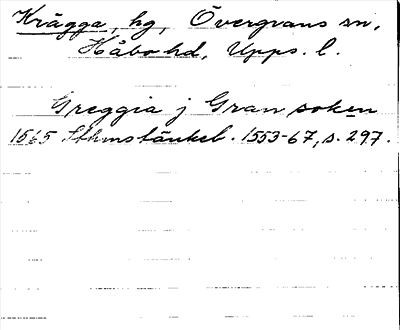 Krägga, hg, Övergrans sn,
Håbo hd, Upps. l.
Greggia j Gran soken
1565 Sthmstänkeb. 1553-67, s. 297.